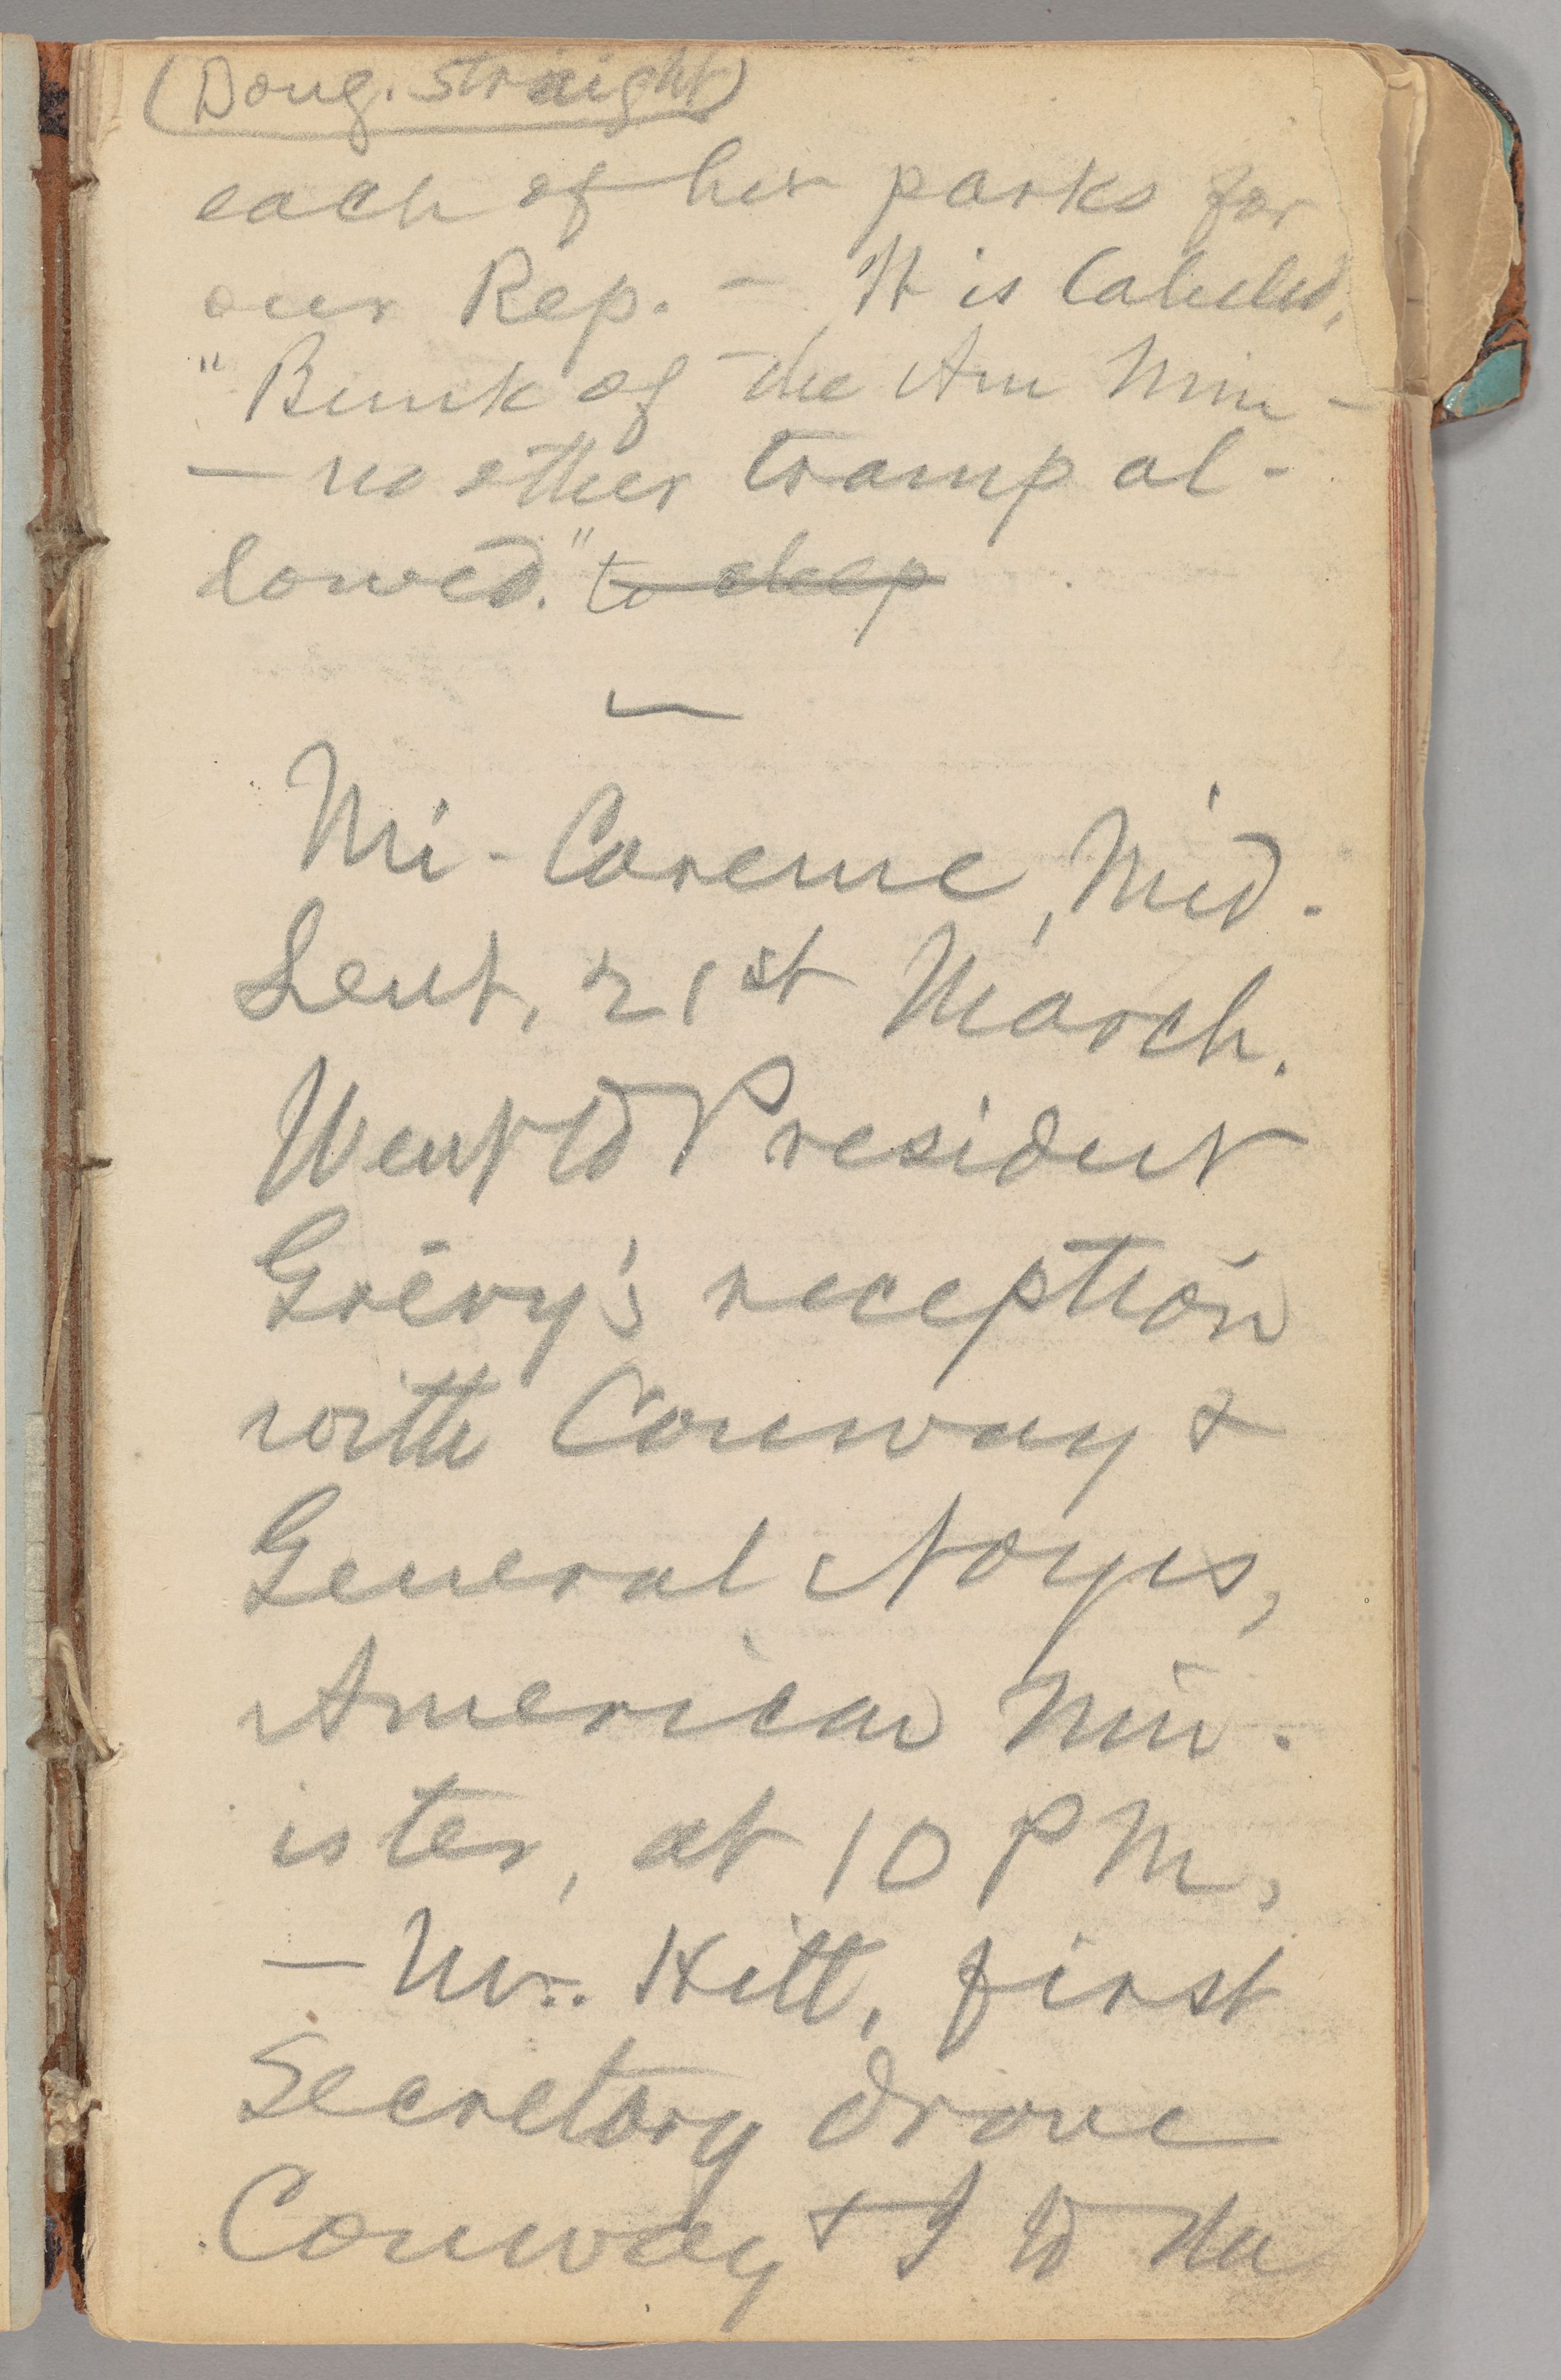 (Doug. Straight)
each of her parks for
our Rep. — It is labeled,
"Bunk of the Am Min —
— no other tramp al-
lowed." to sleep
—
Mi-Careme, Mid-
Lent, 21st March.
Went to President
Grévy's reception
with Conway &
General Noyes,
American Min-
ister, at 10 P M,
— Mr. Hitt, first
Secretary drove
Conway & I to the